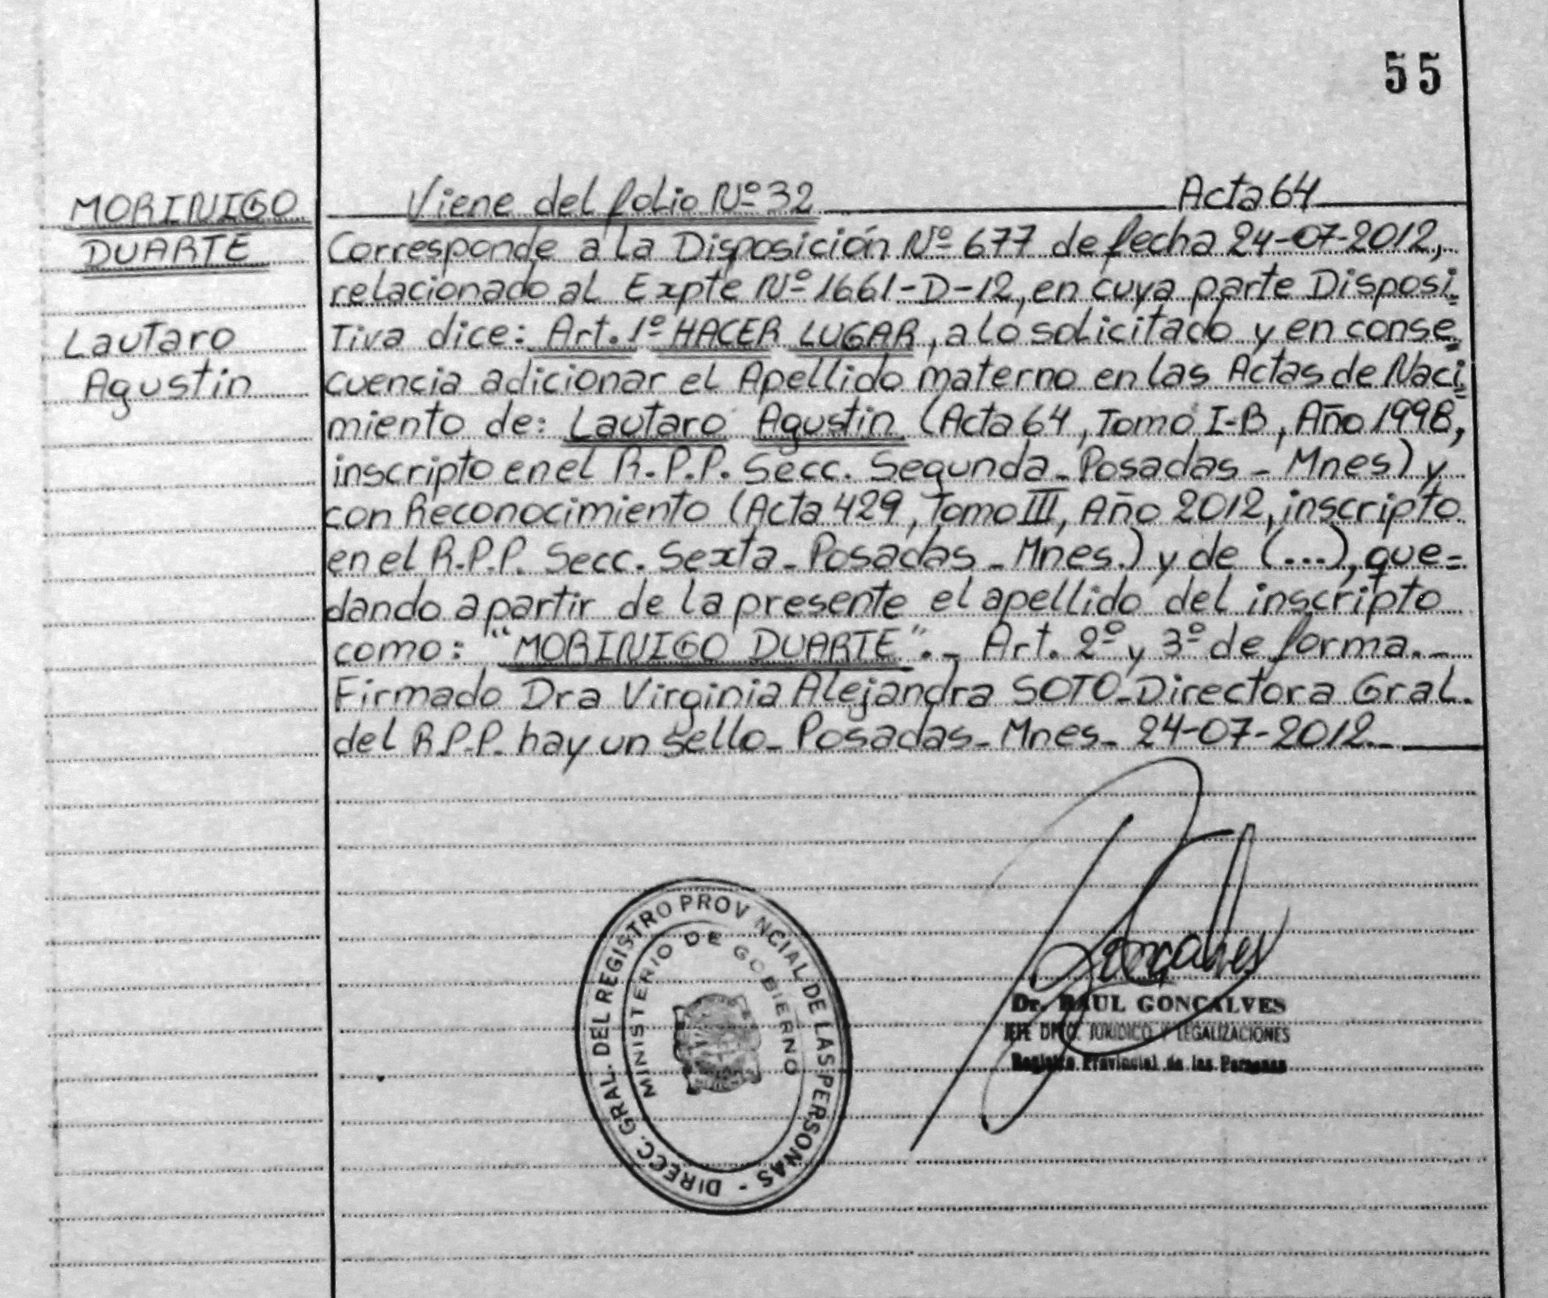 55
MORINIGO
DUARTE
Lautaro
Agustin
Viene del folio Nº 32 Acta 64
Corresponde a la Disposición Nº 677 de fecha 24-07-2012,
relacionado al Expte Nº 1661-D-12, en cuya parte Disposi=
Tiva dice: Art. 1º HACER LUGAR, a lo solicitado y en conse=
cuencia adicionar el Apellido materno en las Actas de Naci=
miento de: Lautaro Agustin (Acta 64, Tomo I-B, Año 1998,
inscripto en el R.P.P. Secc. Segunda - Posadas - Mnes) y
con Reconocimiento (Acta 429, Tomo III, Año 2012, inscripto
en el R.P.P. Secc. Sexta - Posadas - Mnes.) y de (...), que=
dando a partir de la presente el apellido del inscripto
como: "MORINIGO DUARTE".- Art. 2º y 3º de forma.-
Firmado Dra Virginia Alejandra SOTO - Directora Gral.
del R.P.P. hay un sello - Posadas - Mnes - 24-07-2012.-
DIRECC. GRAL. DEL REGISTRO PROVINCIAL DE LAS PERSONAS -
MINISTERIO DE GOBIERNO
Goncalves
Dr. RAUL GONCALVES
JEFE DPTO. JURIDICO Y LEGALIZACIONES
Registro Provincial de las Personas